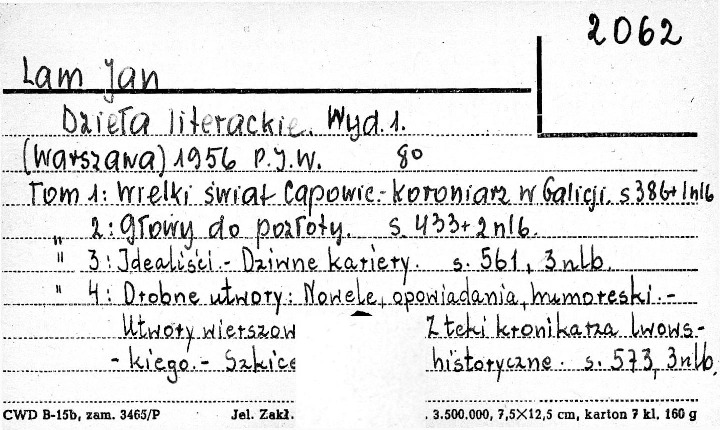 2062
Lam Jan
Dzieła literackie. Wyd. 1.
(Warszawa) 1956 P.I.W. 8o
Tom 1: Wielki świat Capowic.- Koroniarz w Galicji. s 386+1nlb
" 2: Głowy do pozłoty. s. 433+2nlb.
" 3: Idealiści.- Dziwne kariery. s. 561, 3nlb.
" 4: Drobne utwory: Nowele, opowiadania, humoreski.-
Utwory wierszow Z teki kronikarza lwows-
- kiego.- Szkice historyczne. s. 573, 3nlb.
CWD B-15b, zam. 3465/P Jel. Zakł. . 3.500.000, 7,5×12,5 cm, karton 7 kl. 160 g